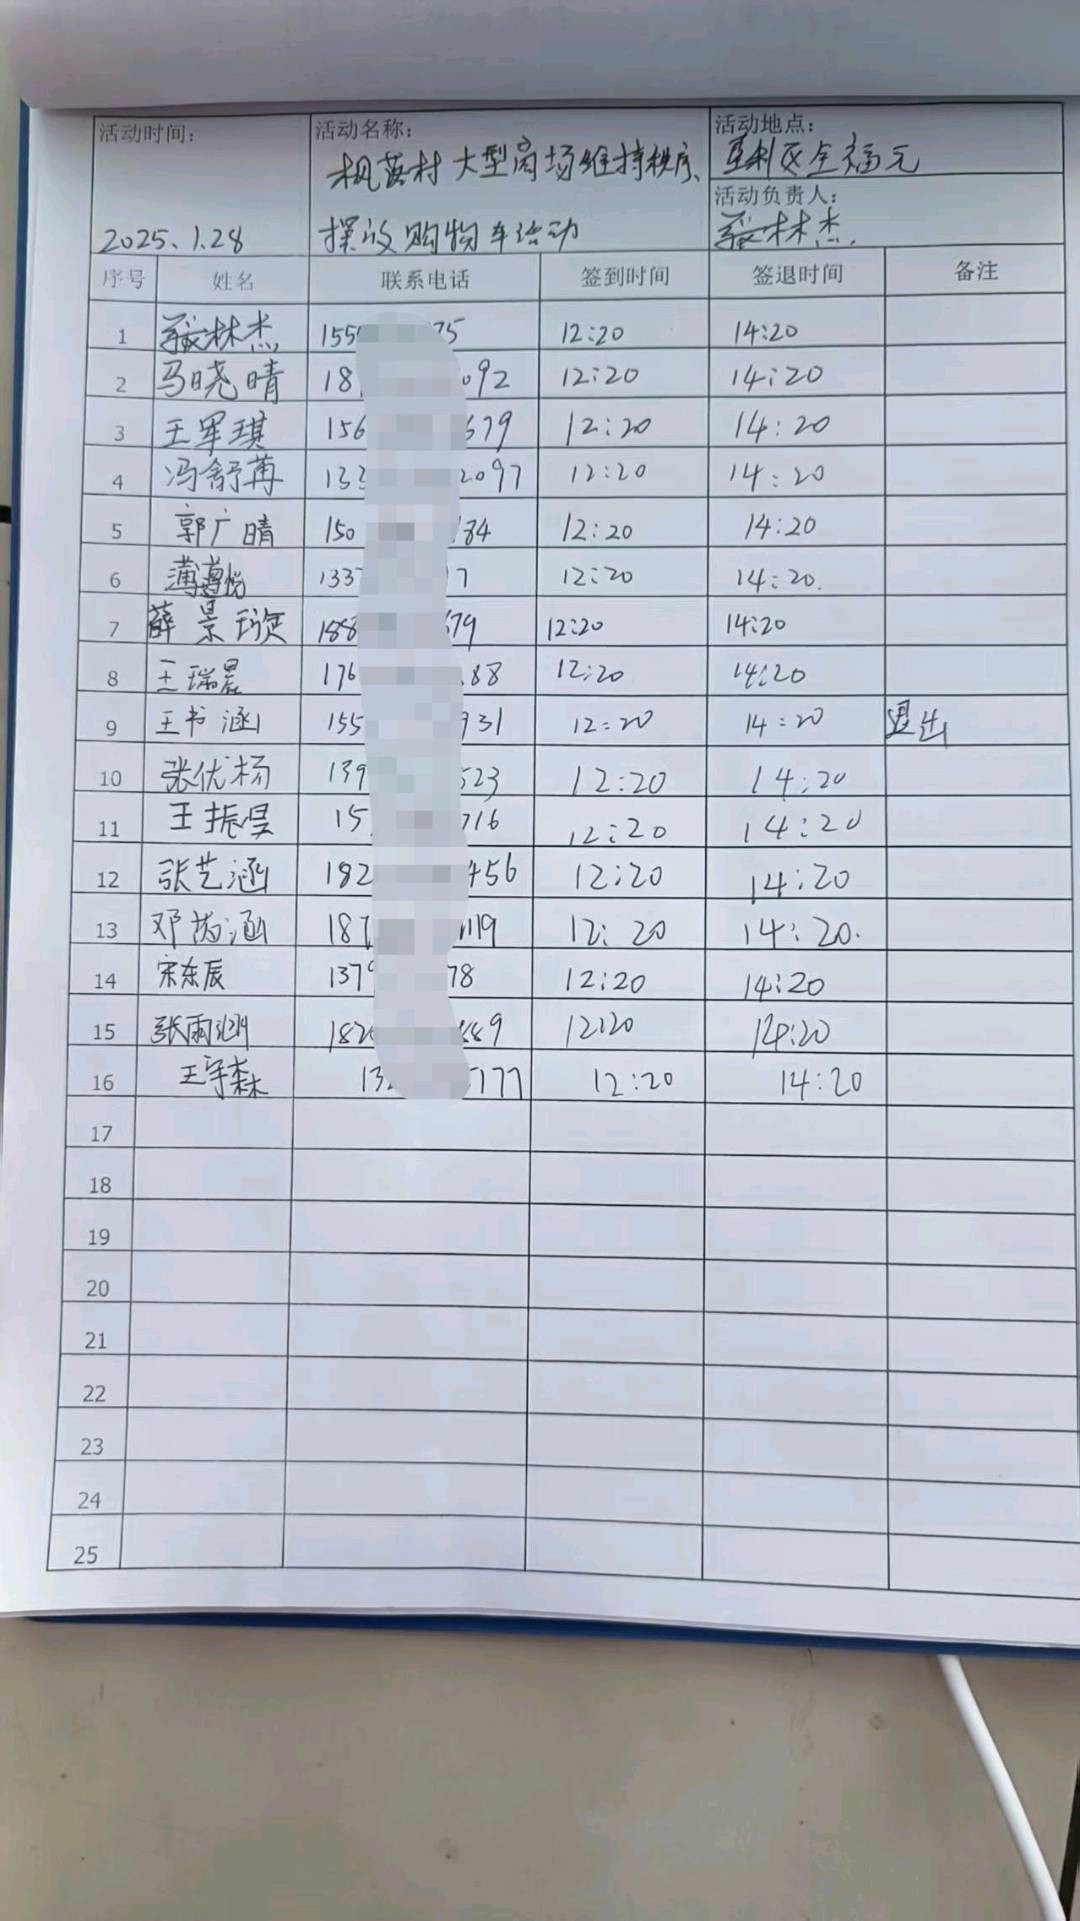 活动时间: 活动名称: 活动地点:
枫萓村 大型商场维持秩序、
垦利区全福元
活动负责人:
2025.1.28 摆放购物车活动 林杰
序号 姓名 联系电话 签到时间 签退时间 备注
1 林杰 155 75 12:20 14:20
2 马晓晴 18 092 12:20 14:20
3 王军琪 156 679 12:20 14:20
4 冯舒苒 133 2097 12:20 14:20
5 郭广晴 150 184 12:20 14:20
6 1337 7 12:20 14:20.
7 薛景 188 679 12:20 14:20
8 王瑞晨 176 88 12:20 14:20
9 王书涵 155 931 12:20 14:20 退出
10 张优杨 139 523 12:20 14:20
11 王振昊 15 716 12:20 14:20
12 张艺涵 182 456 12:20 14:20
13 邓涵 187 119 12:20 14:20.
14 宋东辰 1379 78 12:20 14:20
15 张雨涵 182 889 12:20 14:20
16 王宇森 13 5177 12:20 14:20
17
18
19
20
21
22
23
24
25